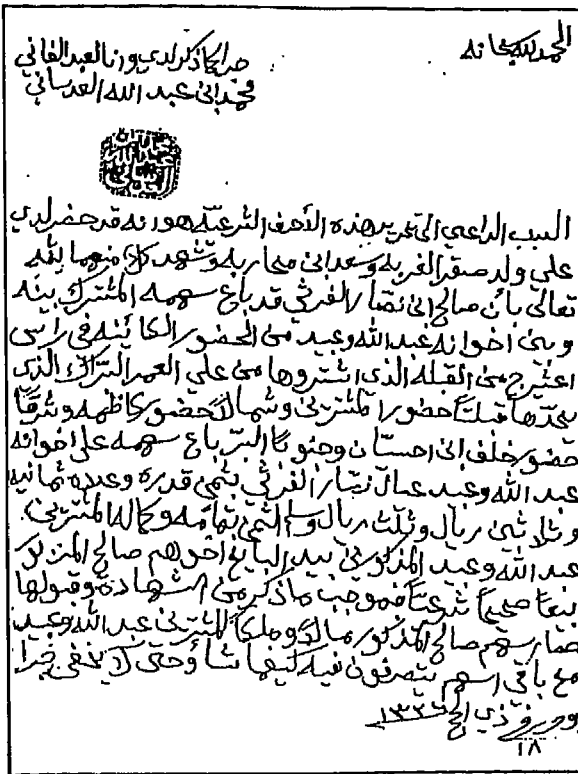 الحمد لله سبحانه
جرا كما ذكر لدي وانا العبد الفاني
محمد ابن عبد الله العدساني
السبب الداعي الى تحرير هذه الأحرف الشرعيه هو انه قد حضر لدي
علي ولد صقر الغربه وسعد ابن محاربه وشهد كل منهما بالله
تعالى بأن صالح ابن نصار الفرثي قد باع سهمه المشترك بينه
وبين اخوانه عبد الله وعبيد من الحضور الكائينه في راس
اعثيرج من القبله الذي اشتروها من علي العمر التراك الذي
يحدّها قبلتاً حضور المشترين وشمالاً حضور كاظمه وشرقاً
حضور خلف ابن احستان وجنوباً البرّ باع سهمه على اخوانه
عبد الله وعبيد عيال نصار الفرثي بثمن قدره وعداه ثمانيه
وثلاثين ريال وثلث ريال وسلم الثمن بتمامه وكماله المشترين
عبد الله وعبيد المذكورين بيد البايع اخوهم صالح المزبور
بيعاً صحيحاً شرعياً فبموجب ما ذكر من الشهادة وقبولها
صار سهم صالح المذكور مالاً وملكاً للمشترين عبد الله وعبيد
مع باقي اسهم يتصرفون فيه كيفما شاؤ وحتى لا يخفى جرا
وحرر في ذي الحج ١٣٣٦
١٨